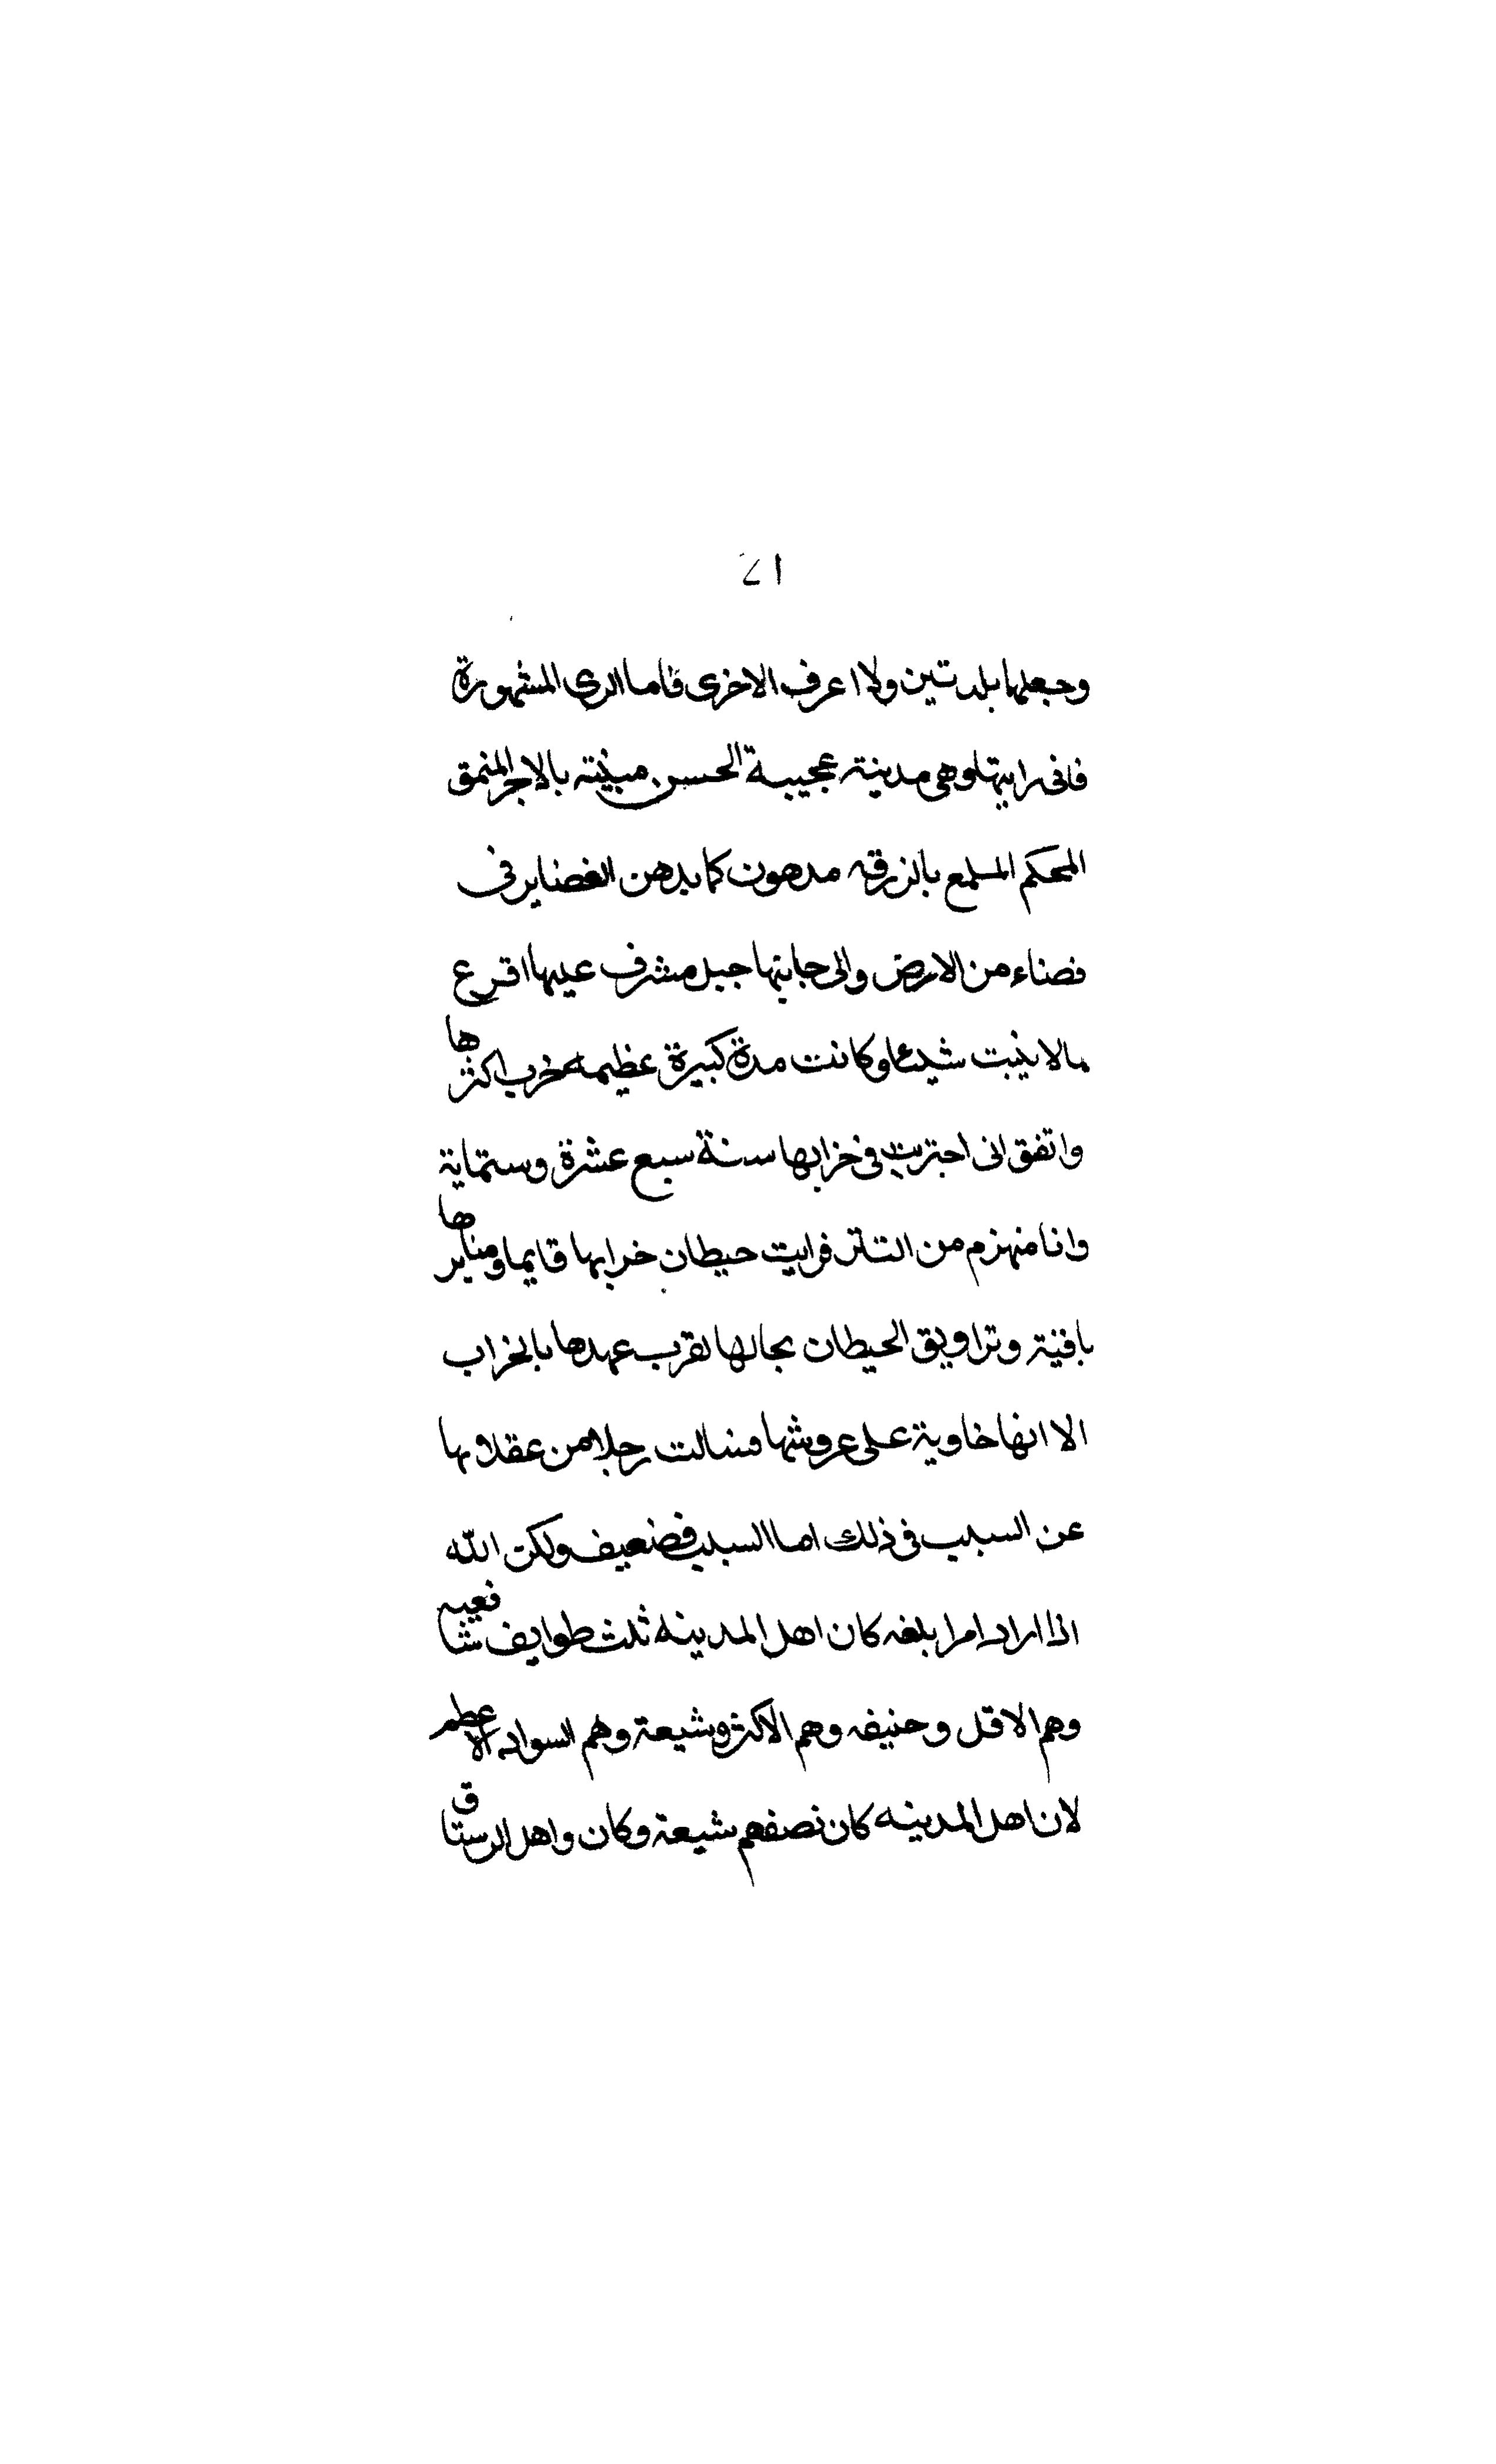 ٧١
وجعلها بلدتين ولا اعرف الاخرى فاما الرى المشهورة
فانى رايتها وهى مدينة عجيبة الحسن مبنيته بالاجر المنمق
المحكم الملمع بالزرقه مدهون كما يدهن الغضاير فى
فضاء من الارض والى جانبها جبل مشرف عليها اقرع
مالا ينبت شيئا وكانت مدة كبيرة عظيمه خرب اكثرها
واتفق انى اجتزيت فى خرابها سنة سبع عشرة وستماية
وانا منهزم من التتر فرايت حيطان خرابها قايما ومنابرها
باقية وتزاويق الحيطان بحالها لقرب عهدها بالخراب
الا انها خاوية على عروشها فسالت رجلا من عقلاىها
عن السبب فى ذلك اما السبب فضعيف ولكن الله
اذا اراد امرا بلغه كان اهل المدينه ثلث طوايف شافعيه
وهم الاقل وحنيفه وهم الاكثر وشيعة وهم السواد الاعظم
لان اهل المدينه كان نصفهم شيعة وكان واهل الرستاق